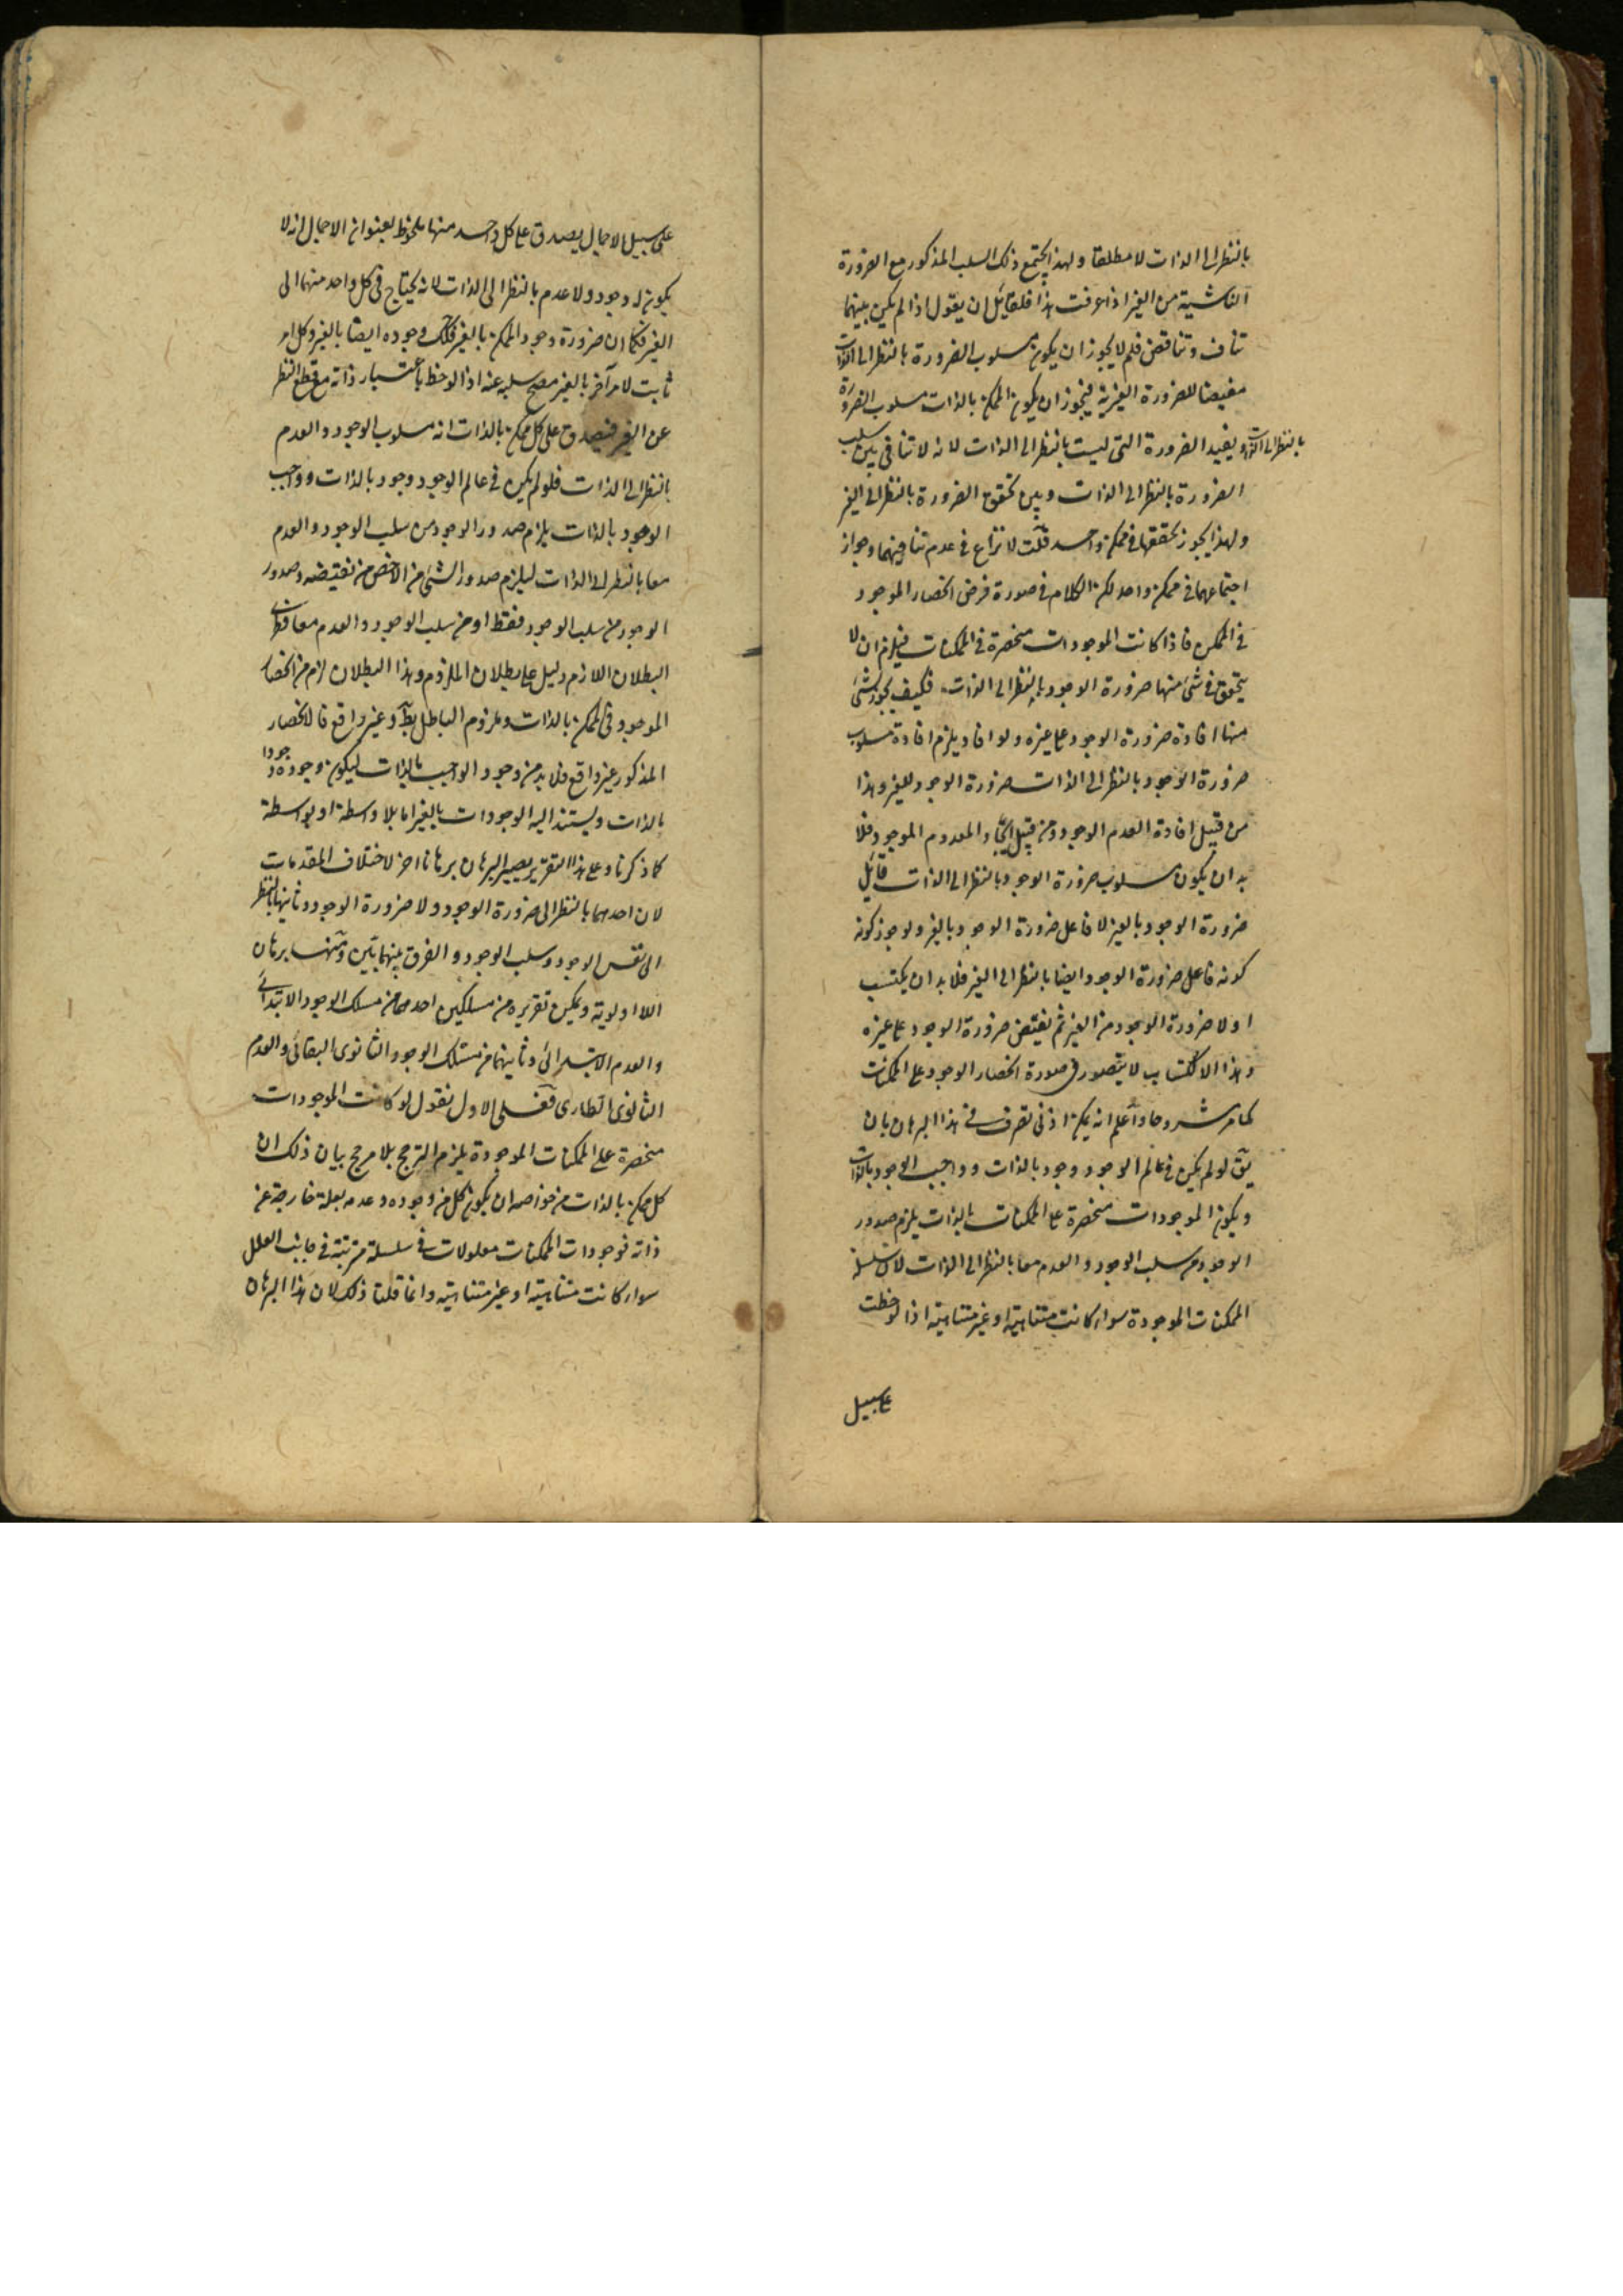 بالنظر الى الذات لا مطلقا ولهذا يجتمع ذلك السلب المذكور مع الضرورة
الناشية من الغير اذا عرفت هذا فلقائل ان يقول اذا لم يكن بينهما
تناف وتناقض فلم لا يجوز ان يكون مسلوب الضرورة بالنظر الى الذات
مفيضا للضرورة الغيرية فيجوز ان يكون الممكن بالذات مسلوب الضرورة
بالنظر الى الذات ويفيد الضرورة التى ليست بالنظر الى الذات لانه لا تنافى بين سلب
الضرورة بالنظر الى الذات وبين تحقق الضرورة بالنظر الى الغير
ولهذا يجوز تحققهما فى ممكن واحد قلت لا نزاع فى عدم تنافيهما وجواز
اجتماعهما فى ممكن واحد لكن الكلام فى صورة فرض انحصار الموجود
فى الممكن فاذا كانت الموجودات منحصرة فى الممكنات فيلزم ان لا
يتحقق فى شئ منها ضرورة الوجود بالنظر الى الذات فكيف يجوز لشئ
منها افادة ضرورة الوجود على غيره ولو افاد يلزم افادة مسلوب
ضرورة الوجود بالنظر الى الذات ضرورة الوجود للغير وهذا
من قبيل افادة العدم الوجود ومن قبيل ايجاد المعدوم الموجود فلا
بد ان يكون مسلوب ضرورة الوجود بالنظر الى الذات قابل
ضرورة الوجود بالغير لا فاعل ضرورة الوجود بالغير ولو جوز كونه
كونه فاعل ضرورة الوجود ايضا بالنظر الى الغير فلا بد ان يكتسب
اولا ضرورة الوجود من الغير ثم يفيض ضرورة الوجود على غيره
وهذا الاكتساب لا يتصور فى صورة انحصار الوجود على الممكنات
كما مر مشروحا واعلم انه يمكن ادنى تصرف فى هذا البرهان بان
يق لو لم يكن فى عالم الوجود وجود بالذات وواجب الوجود بالذات
ويكون الموجودات منحصرة على الممكنات بالذات يلزم صدور
الوجود من سلب الوجود والعدم معا بالنظر الى الذات لان سلسلة
الممكنات الموجودة سواء كانت متناهية او غير متناهية اذا لوحظت
على سبيل
على سبيل الاجمال يصدق على كل واحد منها ملحوظ بعنوان الاجمال انه لا
يكون له وجود ولا عدم بالنظر الى الذات لانه يحتاج فى كل واحد منهما الى
الغير فكما ان ضرورة وجود الممكن بالغير فكك وجوده ايضا بالغير وكل امر
ثابت لامر آخر بالغير مصح سلبه عنه اذا لوحظ باعتبار ذاته مع قطع النظر
عن الغير فيصدق على كل ممكن بالذات انه مسلوب الوجود والعدم
بالنظر الى الذات فلو لم يكن فى عالم الوجود وجود بالذات وواجب
الوجود بالذات يلزم صدور الوجود من سلب الوجود والعدم
معا بالنظر الى الذات ليلزم صدور الشئ من الاخص من نقيضه وصدور
الوجود من سلب الوجود فقط او من سلب الوجود والعدم معا
البطلان اللازم دليل على بطلان الملزوم وهذا البطلان لزم من انحصار
الموجود فى الممكن بالذات وملزوم الباطل بط وغير واقع فالانحصار
المذكور غير واقع فلا بد من وجود الواجب بالذات ليكون وجوده وجودا
بالذات ويستند اليه الوجودات بالغير اما بلا واسطة او بواسطة
كما ذكرنا وعلى هذا التقرير يصير البرهان برهانا اخر لاختلاف المقدمات
لان احدهما بالنظر الى ضرورة الوجود ولا ضرورة الوجود وثانيهما بالنظر
الى نفس الوجود وسلب الوجود والفرق بينهما بين ومنها برهان
اللااولوية ويمكن تقريره من مسلكين احدهما من مسلك الوجود الابتدائى
والعدم الابتدائى وثانيهما من مسلك الوجود الثانوى البقائى والعدم
الثانوى الطارى فعلى الاول نقول لو كانت الموجودات
منحصرة على الممكنات الموجودة يلزم الترجح بلا مرجح بيان ذلك ان
كل ممكن بالذات من خواصه ان يكون كل من وجوده وعدمه بعلة خارجة عن
ذاته فوجودات الممكنات معلولات فى سلسلة مترتبة فى جانب العلل
سواء كانت متناهية او غير متناهية وانما قلنا ذلك لان هذا البرهان